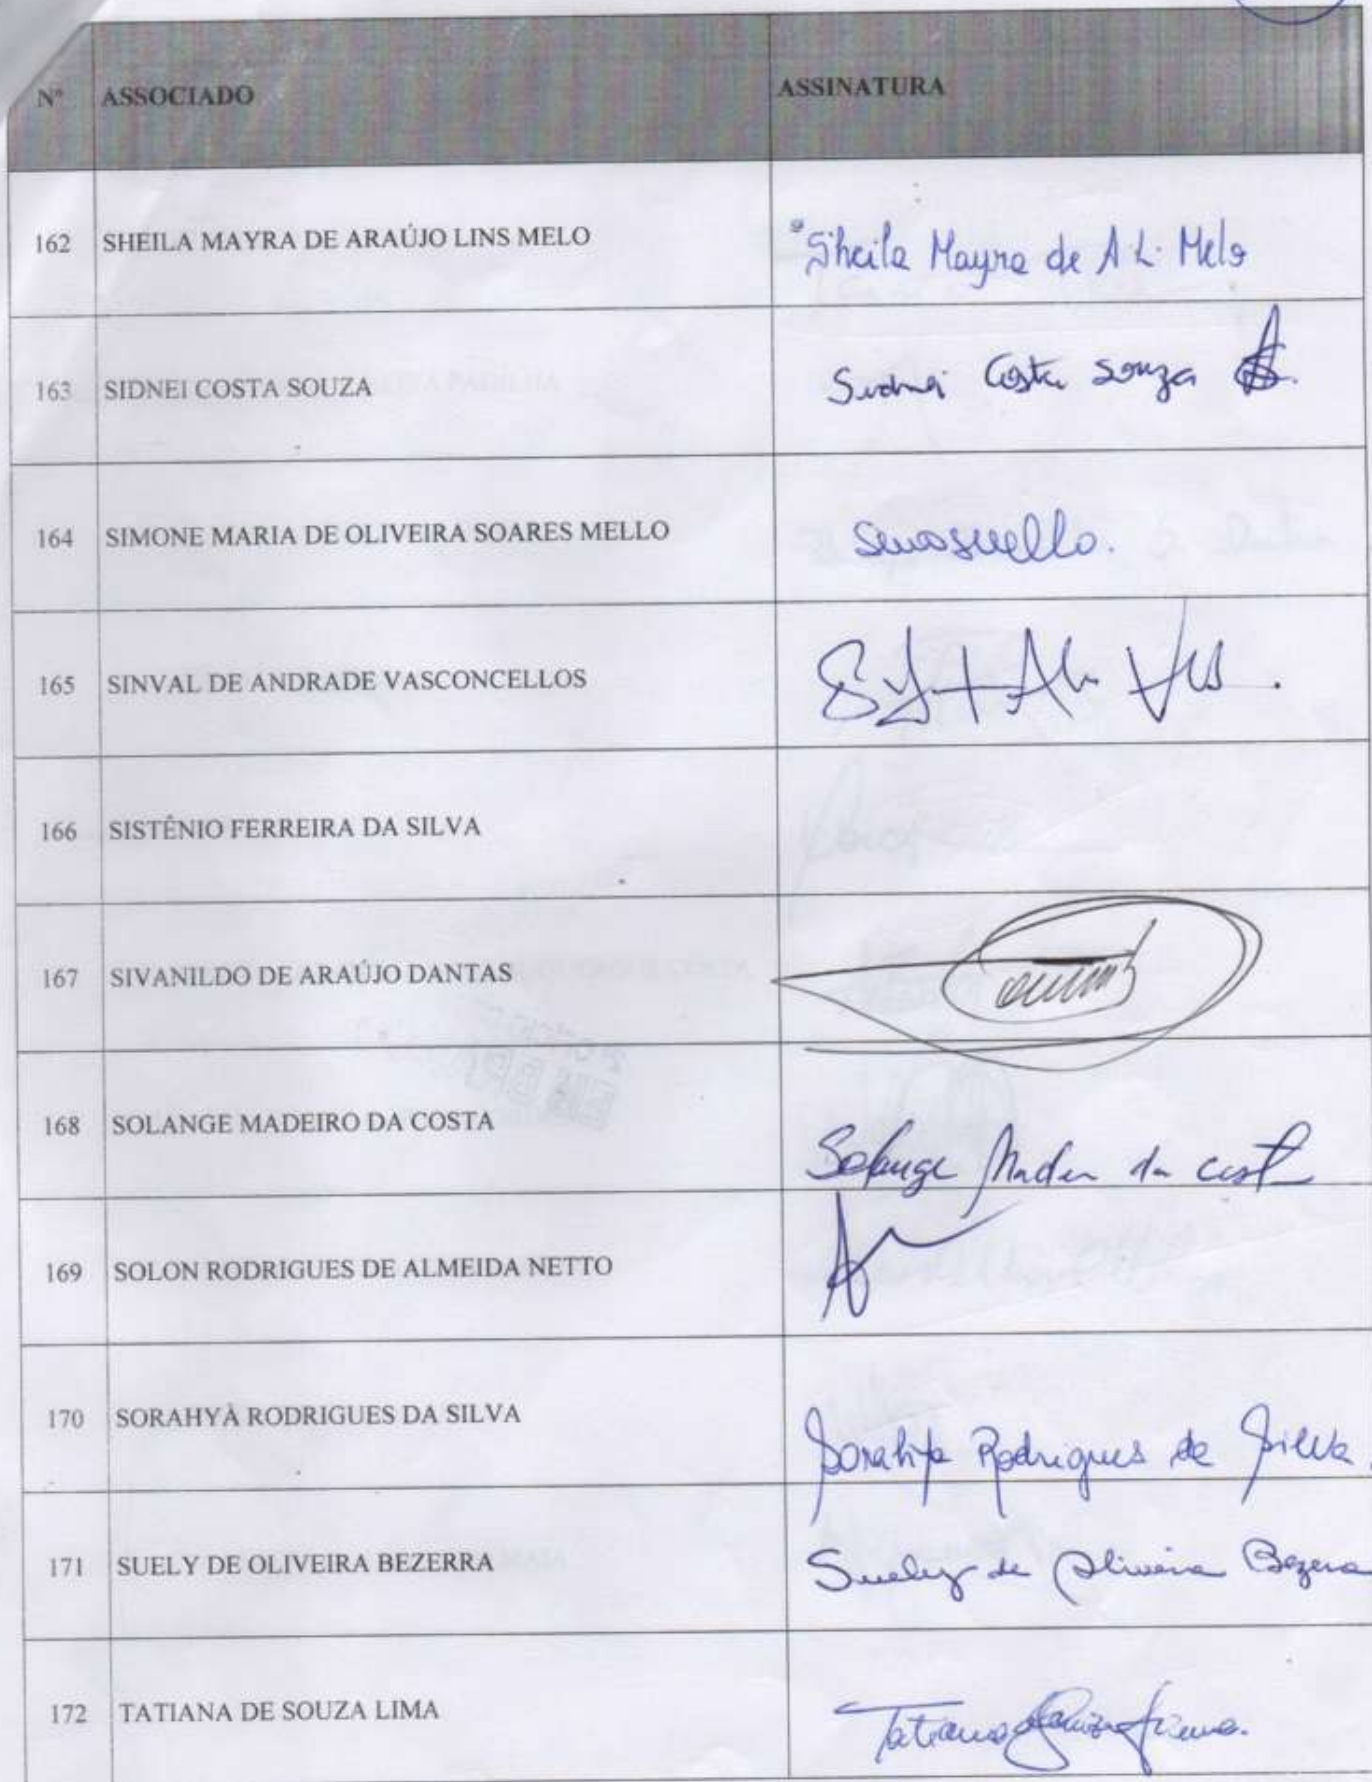 Nº ASSOCIADO ASSINATURA
162 SHEILA MAYRA DE ARAÚJO LINS MELO Sheila Mayra de A L. Melo
163 SIDNEI COSTA SOUZA Sidnei Costa Souza
164 SIMONE MARIA DE OLIVEIRA SOARES MELLO
165 SINVAL DE ANDRADE VASCONCELLOS
166 SISTÊNIO FERREIRA DA SILVA
167 SIVANILDO DE ARAÚJO DANTAS
168 SOLANGE MADEIRO DA COSTA Solange Madeiro da Costa
169 SOLON RODRIGUES DE ALMEIDA NETTO
170 SORAHYA RODRIGUES DA SILVA Sorahya Rodrigues da Silva.
171 SUELY DE OLIVEIRA BEZERRA Suely de Oliveira Bezerra
172 TATIANA DE SOUZA LIMA Tatiana de Souza Lima.